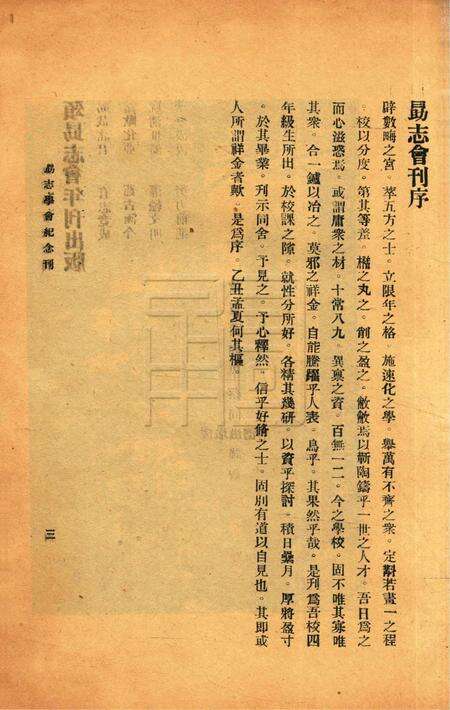 勗志會刊序
辟數畮之宮。萃五方之士。立限年之格。施速化之學。舉萬有不齊之衆。定斠若畫一之程
。校以分度。第其等差。檃之丸之。削之盈之。歒歒焉以蘄陶鑄乎一世之人才。吾日爲之
而心滋惑焉。或謂庸衆之材。十常八九。異稟之資。百無一二。今之學校。固不唯其寡唯
其衆。合一鑪以冶之。莫邪之祥金。自能騰躍乎人表。烏乎。其果然乎哉。是刋爲吾校四
年級生所出。於校課之隙。就性分所好。各精其幾研。以資乎探討。積日纍月。厚將盈寸
。於其畢業。刋示同舍。予見之。予心釋然。信乎好脩之士。固別有道以自見也。其即或
人所謂祥金者歟。是爲序。乙丑孟夏何其樞
勗志學會紀念刊
三